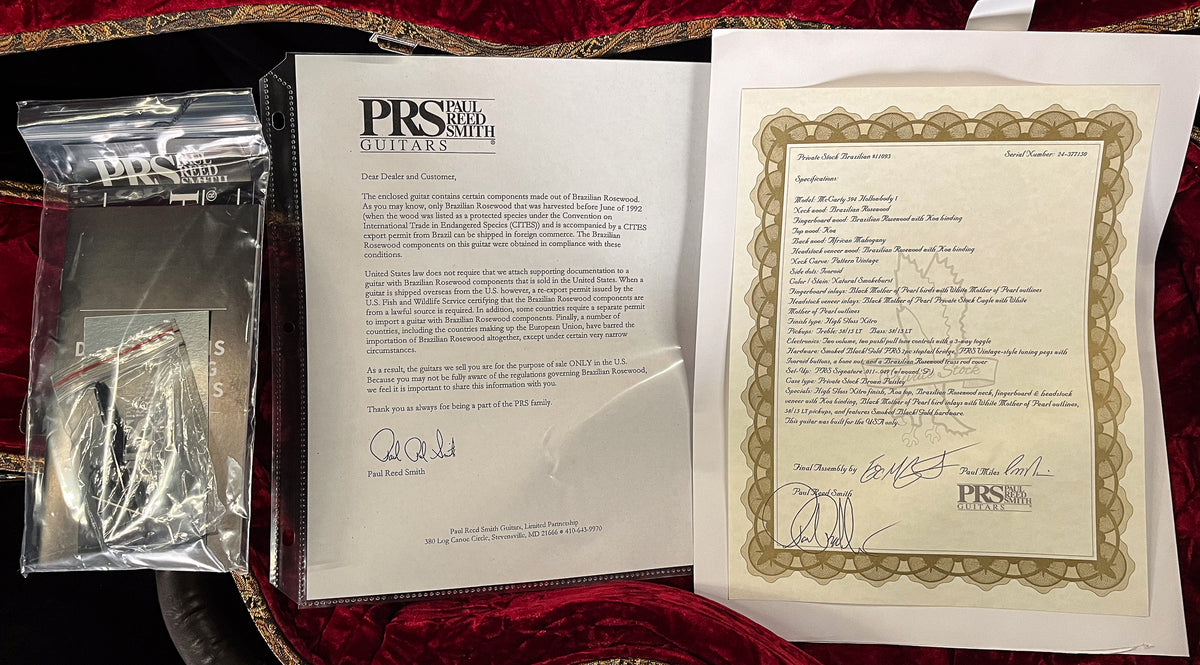 PRS PAUL
REED
SMITH
D
S
S
S
PRS PAUL
REED
SMITH
GUITARS
Dear Dealer and Customer,
The enclosed guitar contains certain components made out of Brazilian Rosewood.
As you may know, only Brazilian Rosewood that was harvested before June of 1992
(when the wood was listed as a protected species under the Convention on
International Trade in Endangered Species (CITES)) and is accompanied by a CITES
export permit from Brazil can be shipped in foreign commerce. The Brazilian
Rosewood components on this guitar were obtained in compliance with these
conditions.
United States law does not require that we attach supporting documentation to a
guitar with Brazilian Rosewood components that is sold in the United States. When a
guitar is shipped overseas from the U.S. however, a re-export permit issued by the
U.S. Fish and Wildlife Service certifying that the Brazilian Rosewood components are
from a lawful source is required. In addition, some countries require a separate permit
to import a guitar with Brazilian Rosewood components. Finally, a number of
countries, including the countries making up the European Union, have barred the
importation of Brazilian Rosewood altogether, except under certain very narrow
circumstances.
As a result, the guitars we sell you are for the purpose of sale ONLY in the U.S.
Because you may not be fully aware of the regulations governing Brazilian Rosewood,
we feel it is important to share this information with you.
Thank you as always for being a part of the PRS family.
Paul Reed Smith
Paul Reed Smith Guitars, Limited Partnership
380 Log Canoe Circle, Stevensville, MD 21666 • 410-643-9970
Private Stock Brazilian #11093 Serial Number: 24-377130
Specifications:
Model: McCarty 594 Hollowbody I
Neck wood: Brazilian Rosewood
Fingerboard wood: Brazilian Rosewood with Koa binding
Top wood: Koa
Back wood: African Mahogany
Headstock veneer wood: Brazilian Rosewood with Koa binding
Neck Carve: Pattern Vintage
Side dots: Ivoroid
Color / Stain: Natural Smokeburst
Fingerboard inlays: Black Mother of Pearl birds with White Mother of Pearl outlines
Headstock veneer inlays: Black Mother of Pearl Private Stock Eagle with White
Mother of Pearl outlines
Finish type: High Gloss Nitro
Pickups: Treble: 58/15 LT Bass: 58/15 LT
Electronics: Two volume, two push/pull tone controls with a 3-way toggle
Hardware: Smoked Black/Gold PRS 2pc stoptail bridge, PRS Vintage-style tuning pegs with
Ivoroid buttons, a bone nut, and a Brazilian Rosewood truss rod cover
Set-Up: PRS Signature .011-.049 (w/wound "G")
Case type: Private Stock Brown Paisley
Specials: High Gloss Nitro finish, Koa top, Brazilian Rosewood neck, fingerboard & headstock
veneer with Koa binding, Black Mother of Pearl bird inlays with White Mother of Pearl outlines,
58/15 LT pickups, and features Smoked Black/Gold hardware.
This guitar was built for the USA only.
Final Assembly by Paul Miles
Paul Reed Smith
PRS PAUL
REED
SMITH
GUITARS